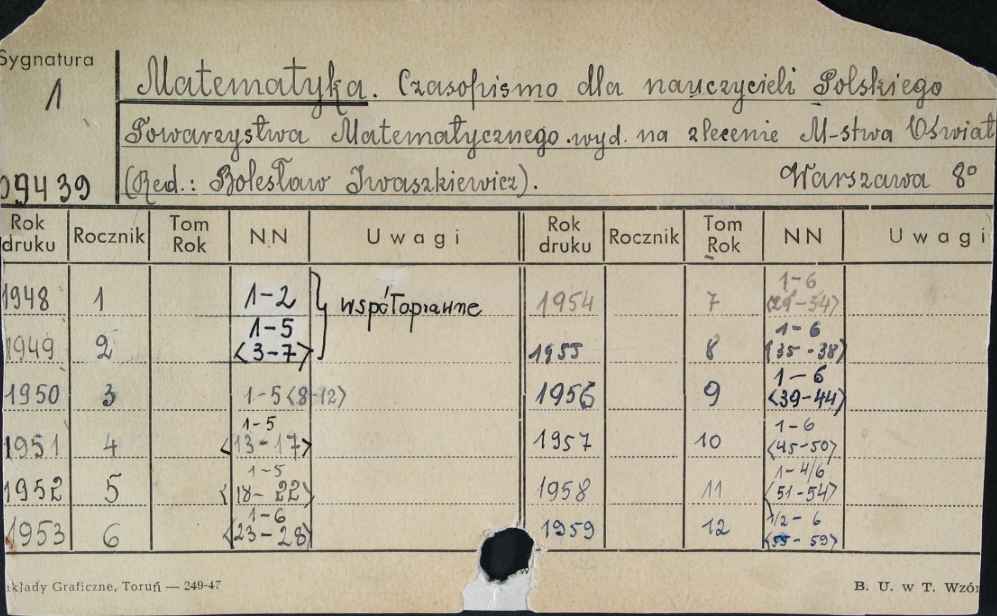 Sygnatura
1
Matematyka. Czasopismo dla nauczycieli Polskiego
Towarzystwa Matematycznego wyd. na zlecenie M-stwa Oświat
09439
(Red.: Bolesław Iwaszkiewicz). Warszawa 8°
Rok druku Rocznik Tom Rok NN Uwagi Rok druku Rocznik Tom Rok NN Uwagi
1948 1 1-2 współoprawne 1954 7 1-6 <29-34>
1949 2 1-5 <3-7> 1955 8 1-6 <35-38>
1950 3 1-5 <8-12> 1956 9 1-6 <39-44>
1951 4 1-5 <13-17> 1957 10 1-6 <45-50>
1952 5 1-5 <18-22> 1958 11 1-4/6 <51-54>
1953 6 1-6 <23-28> 1959 12 1/2-6 <55-59>
kłady Graficzne, Toruń — 249-47 B. U. w T. Wzór